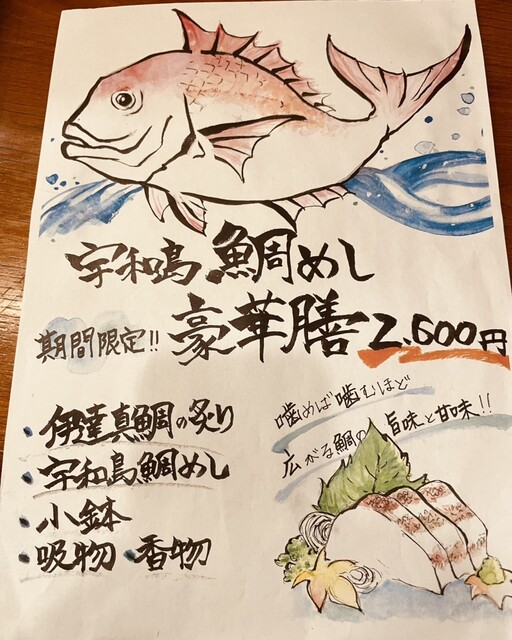 宇和島 鯛めし
期間限定!! 豪華膳 2.600円
噛めば噛むほど
広がる鯛の旨味と甘味!!
・伊達真鯛の炙り
・宇和島鯛めし
・小鉢
・吸物・香物